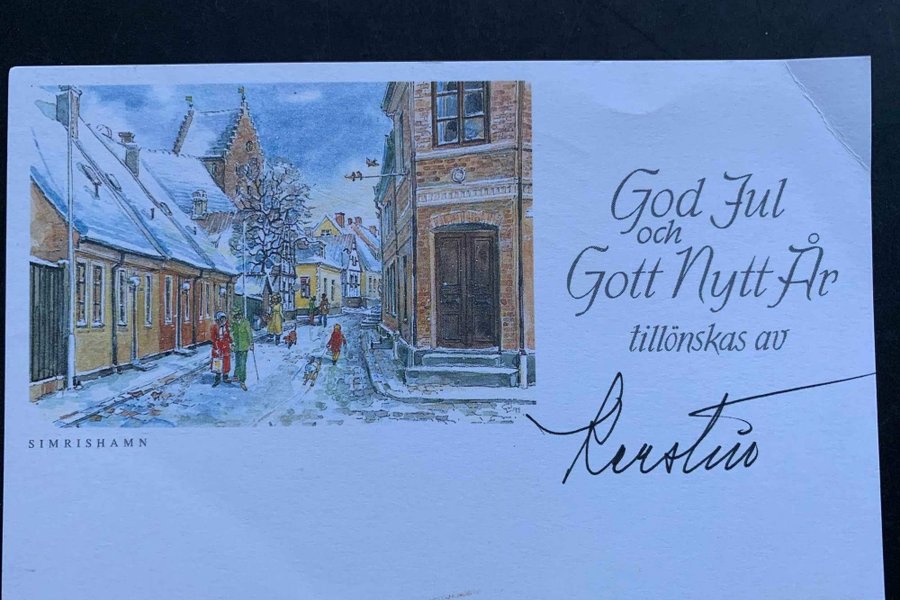 God Jul
och
Gott Nytt År
tillönskas av
Kerstin
SIMRISHAMN